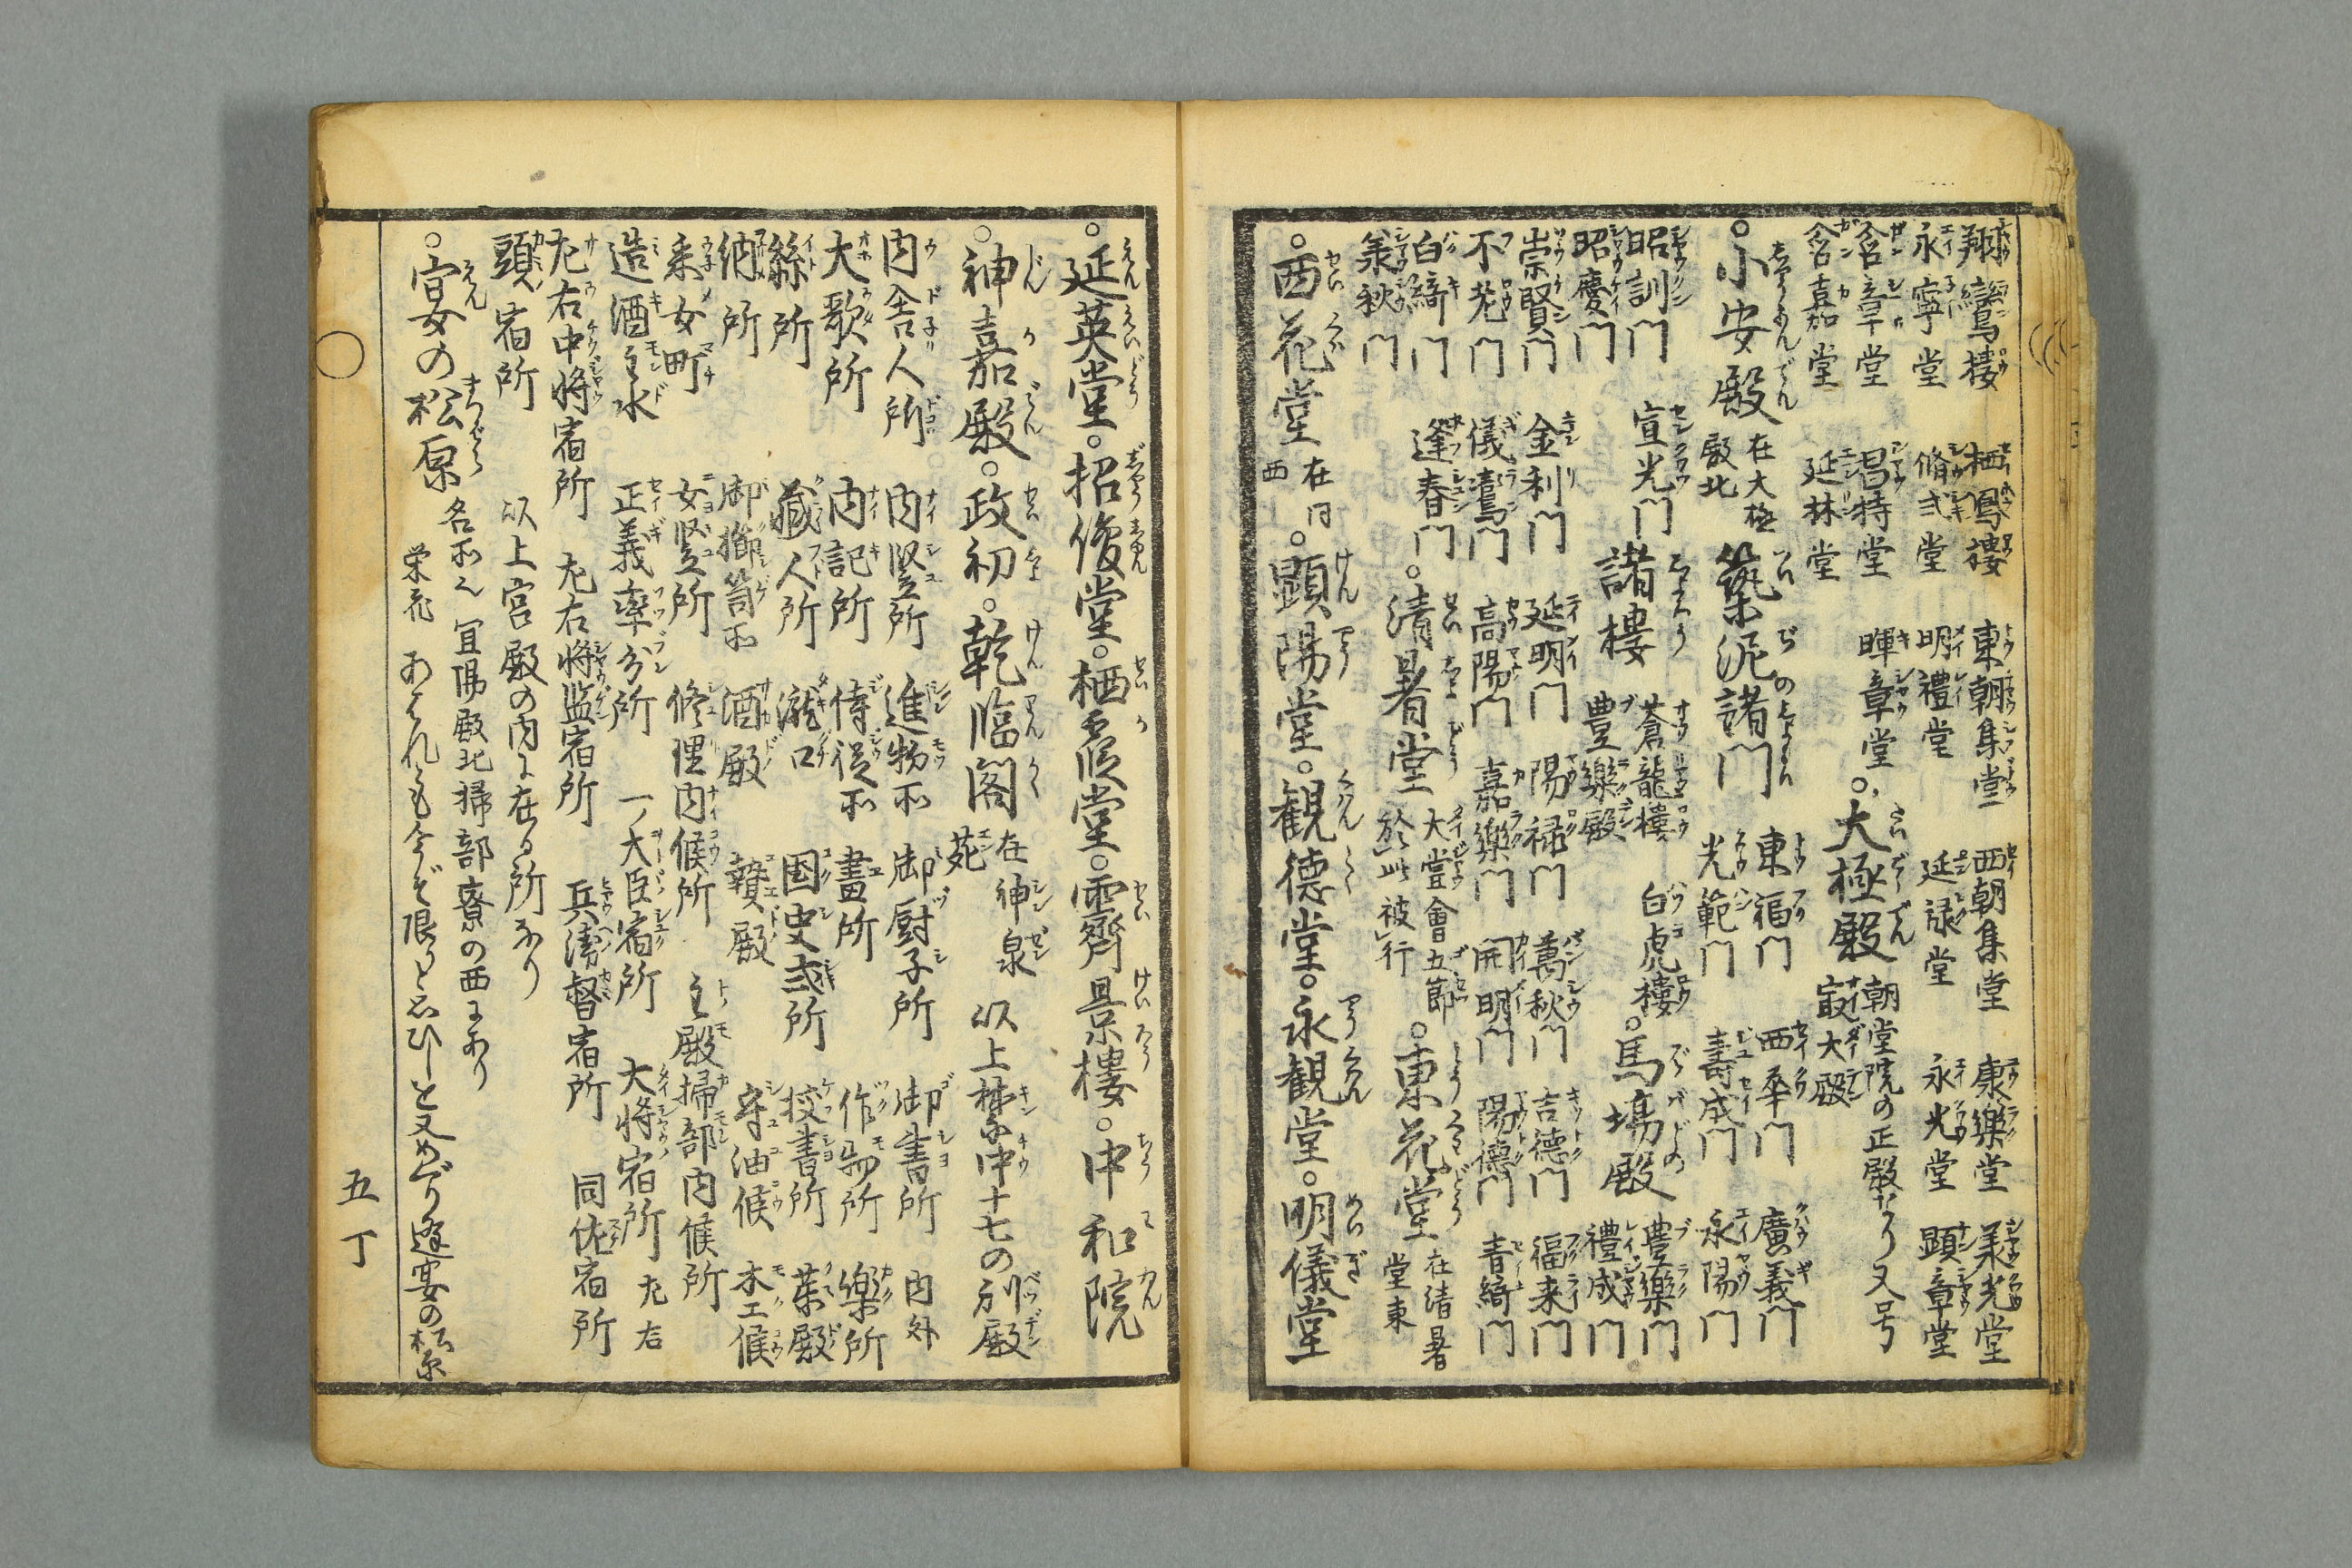 翔鸞樓 栖鳳樓 東朝集堂 西朝集堂 康樂堂 羕光堂
永寧堂 脩式堂 明禮堂 延禄堂 永光堂 顕章堂
含章堂 昌特堂 暉章堂 。大極殿 朝堂院の正殿なり又号
含嘉堂 延林堂 㝡大殿
。小安殿 在大極殿北 築泥諸門 東福門 西華門 廣義門
光範門 壽成門 永陽門
昭訓門 宣光門 諸樓 蒼龍樓 白虎樓 。馬塲殿 豊樂門
昭慶門 豊樂殿 禮成門
崇賢門 金利門 延明門 陽禄門 萬秋門 吉德門 福来門
不老門 儀鸞門 高陽門 嘉樂門 開明門 陽德門 青綺門
白綺門 逢春門 。清暑堂 大嘗會五節於此被行 。東花堂 在清暑堂東
羕秋門
。西花堂 在同西 。顕陽堂 。観德堂 。永観堂 。明儀堂
。延英堂 。招俊堂 。栖霞堂 。霽景樓 。中和院
。神嘉殿 。政初 。乾臨閣 在神泉苑 以上禁中十七の別殿
内舎人所 内竪所 進物所 御厨子所 御書所 内外
大歌所 内記所 侍従所 畫所 作物所 樂所
絲所 蔵人所 瀧口 国史式所 挍書所 藥殿
納所 御櫛笥所 酒殿 贄殿 守油候 木工候
采女町 女竪所 修理内候所 主殿掃部内候所
造酒主水 正義率分所 一ノ大臣宿所 大将宿所 左右
左右中将宿所 左右将監宿所 兵衛督宿所 同佐宿所
頭宿所 以上宮殿の内に在る所なり
。宴の松原 名所也 宜陽殿北掃部寮の西にあり
栄花 あはれにも今ぞ限りと思ひしを又めぐり逢宴の松原
五丁